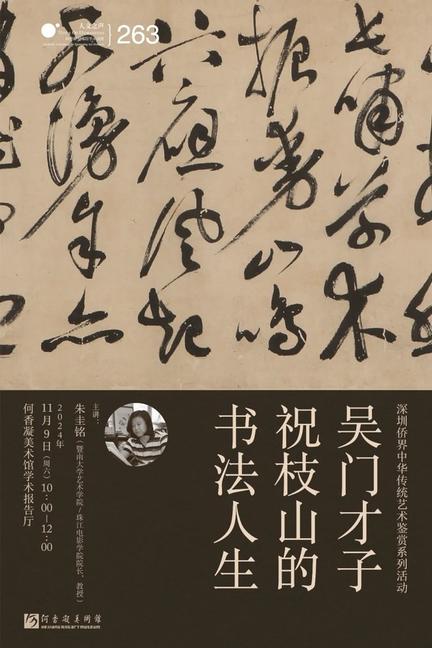 人文之声
263
长啸草木
振動山鳴
谷應風起
深圳侨界中华传统艺术鉴赏系列活动
吴门才子
祝枝山的
书法人生
主讲：
朱圭铭（暨南大学艺术学院/珠江电影学院院长、教授）
2024年
11月9日（周六）10：00—12：00
何香凝美术馆学术报告厅
何香凝美術館
HE XIANGNING ART MUSEUM